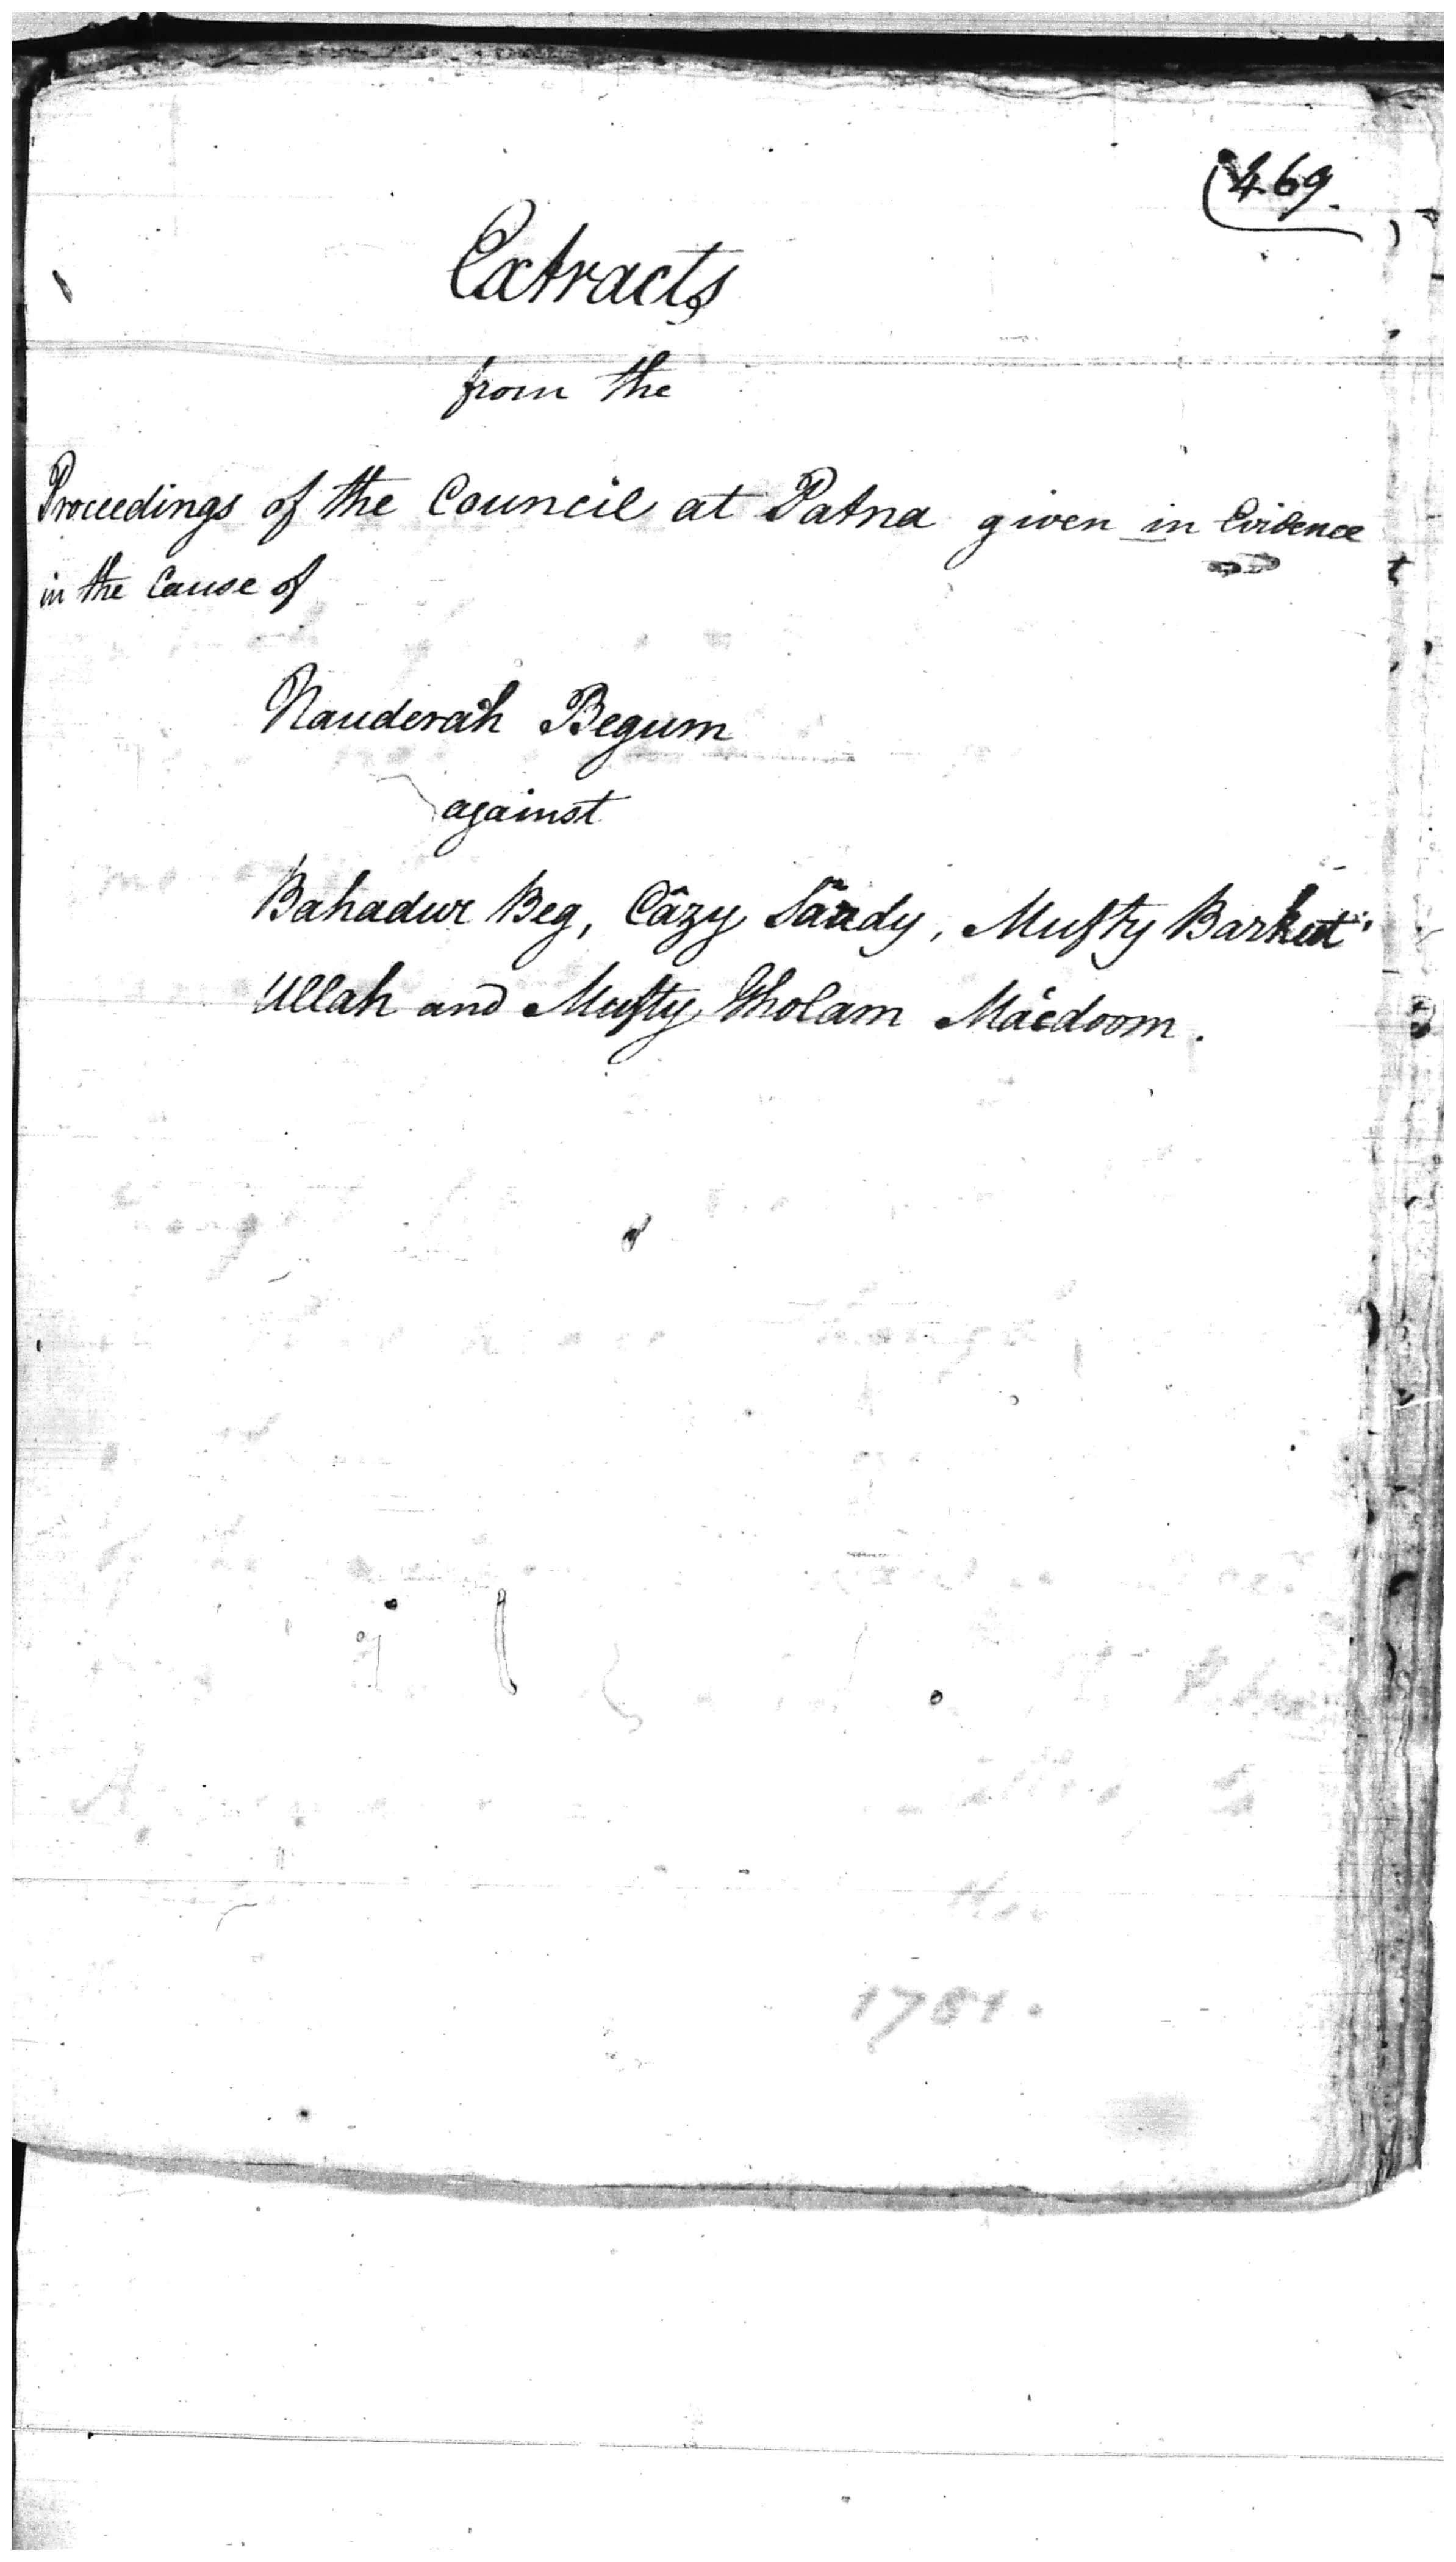 469.
Extracts
from the
Proceedings of the Council at Patna given in Evidence
in the Cause of
Nauderah Begum
against
Bahadur Beg, Câzy Sâudy, Mufty Barkut
Ullah and Mufty Gholam Macdoom.
1781.